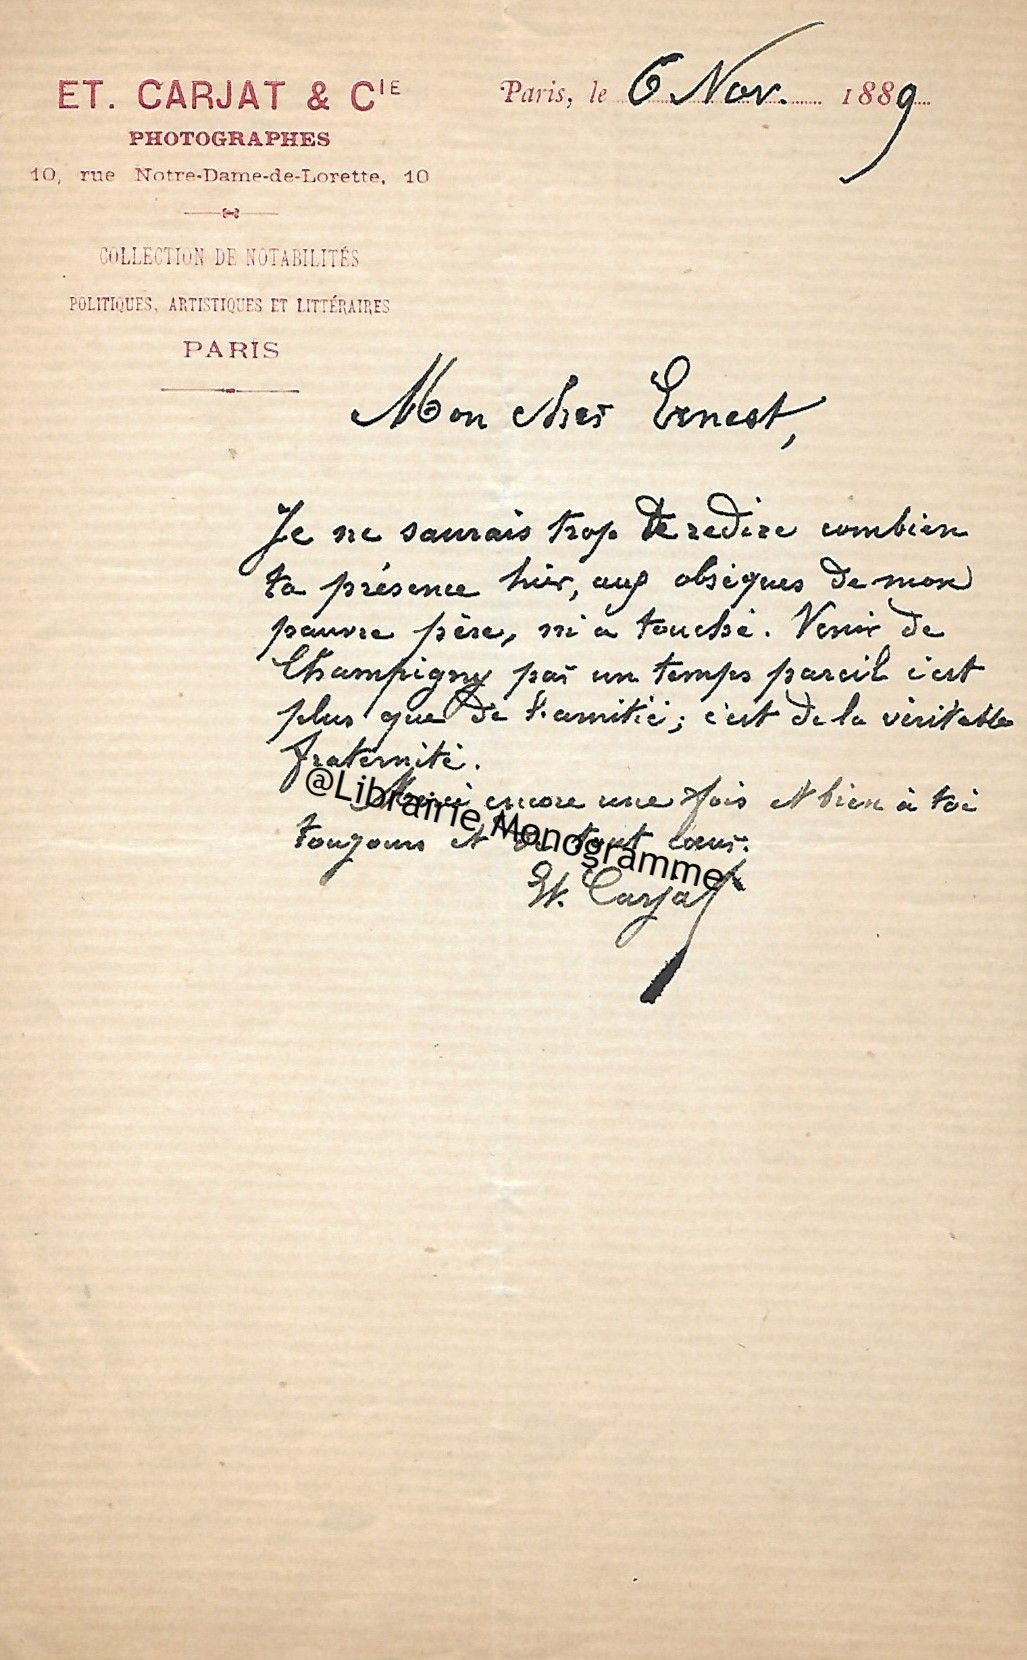 ET. CARJAT & CIE
PHOTOGRAPHES
10, rue Notre-Dame-de-Lorette, 10
COLLECTION DE NOTABILITÉS
POLITIQUES, ARTISTIQUES ET LITTÉRAIRES
PARIS
Paris, le 6 Nov. 1889
Mon cher Ernest,
Je ne saurais trop te redire combien
ta présence hier, aux obsèques de mon
pauvre père, m'a touché. Venir de
Champigny par un temps pareil c'est
plus que de l'amitié; c'est de la véritable
fraternité.
Merci encore une fois et bien à toi
toujours et de tout cœur.
Et. Carjat
@Librairie Monogramme